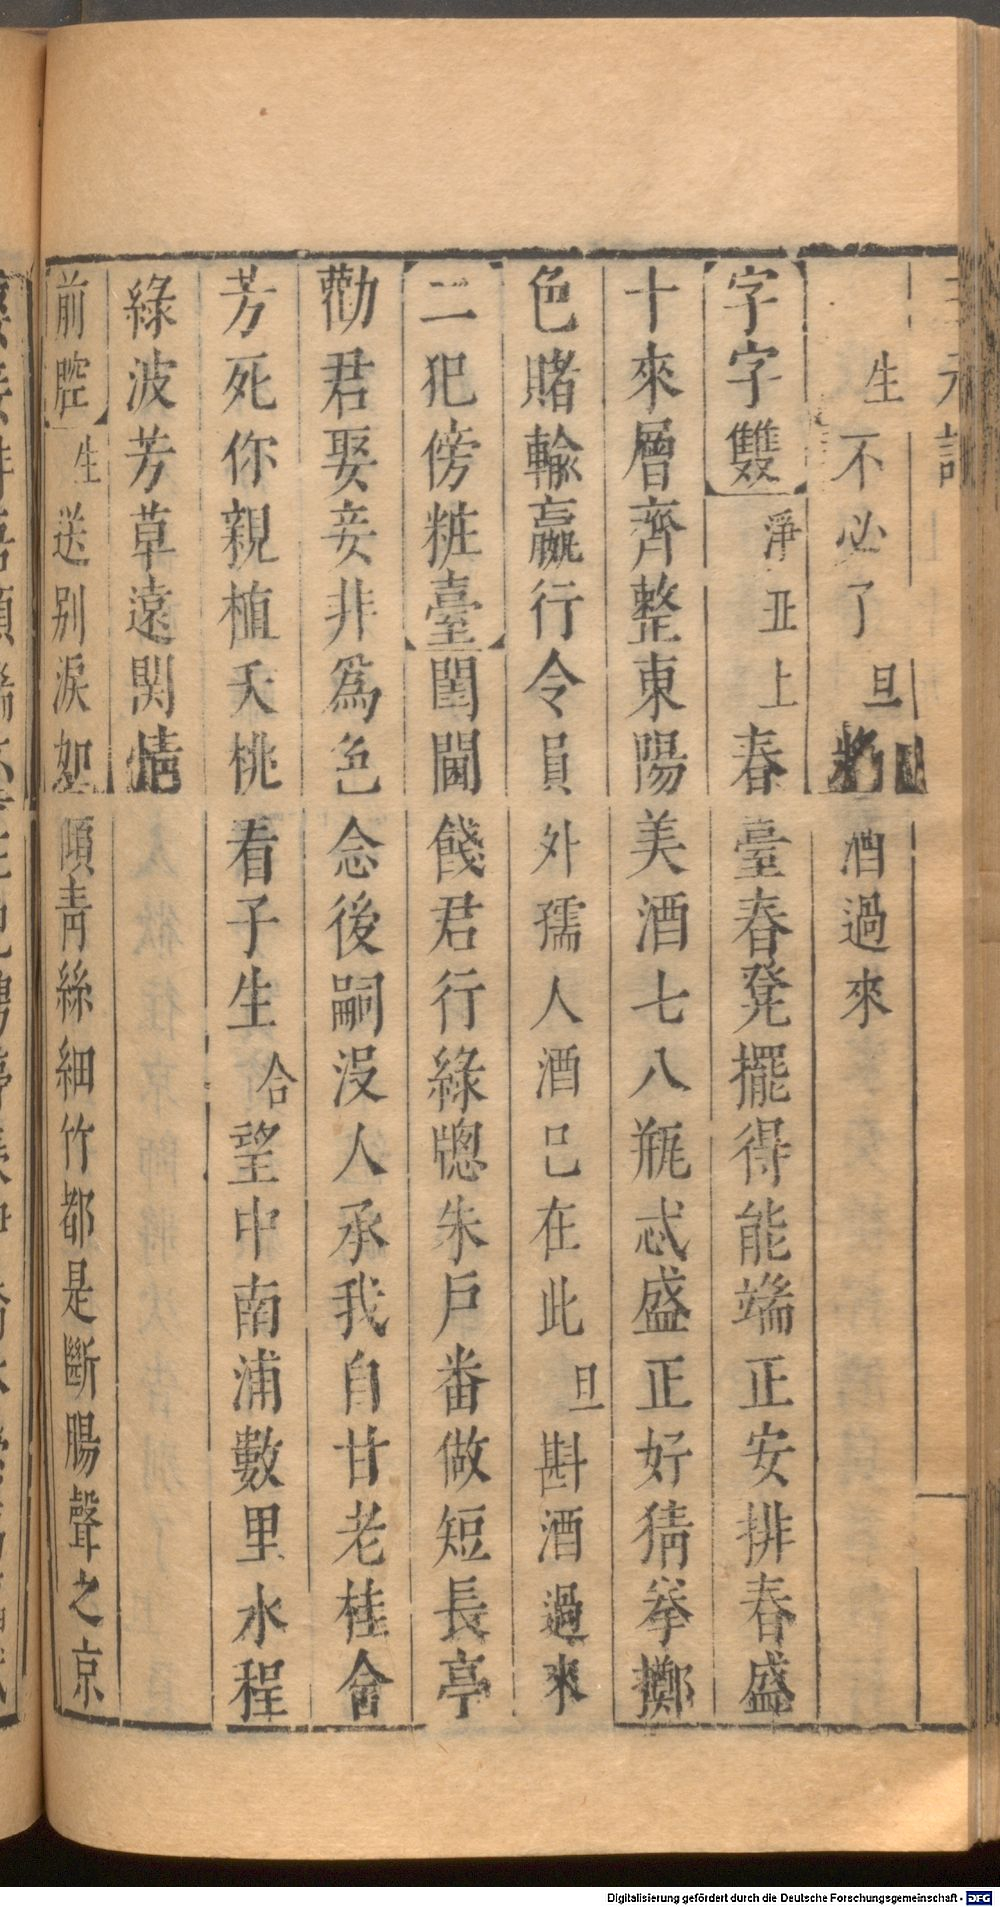 三元記
生不必了旦將酒過來
字字雙淨丑上春臺春凳擺得能端正安排春盛
十來層齊整東陽美酒七八瓶忒盛正好猜拳擲
色賭輸贏行令員外孺人酒已在此旦斟酒過來
二犯傍粧臺閨閫餞君行綠牕朱戶番做短長亭
勸君娶妾非爲色念後嗣沒人承我自甘老桂會
芳死你親植夭桃看子生合望中南浦數里水程
綠波芳草遠関情
前腔生送别淚如傾青絲細竹都是斷腸聲之京
Digitalisierung gefördert durch die Deutsche Forschungsgemeinschaft - DFG